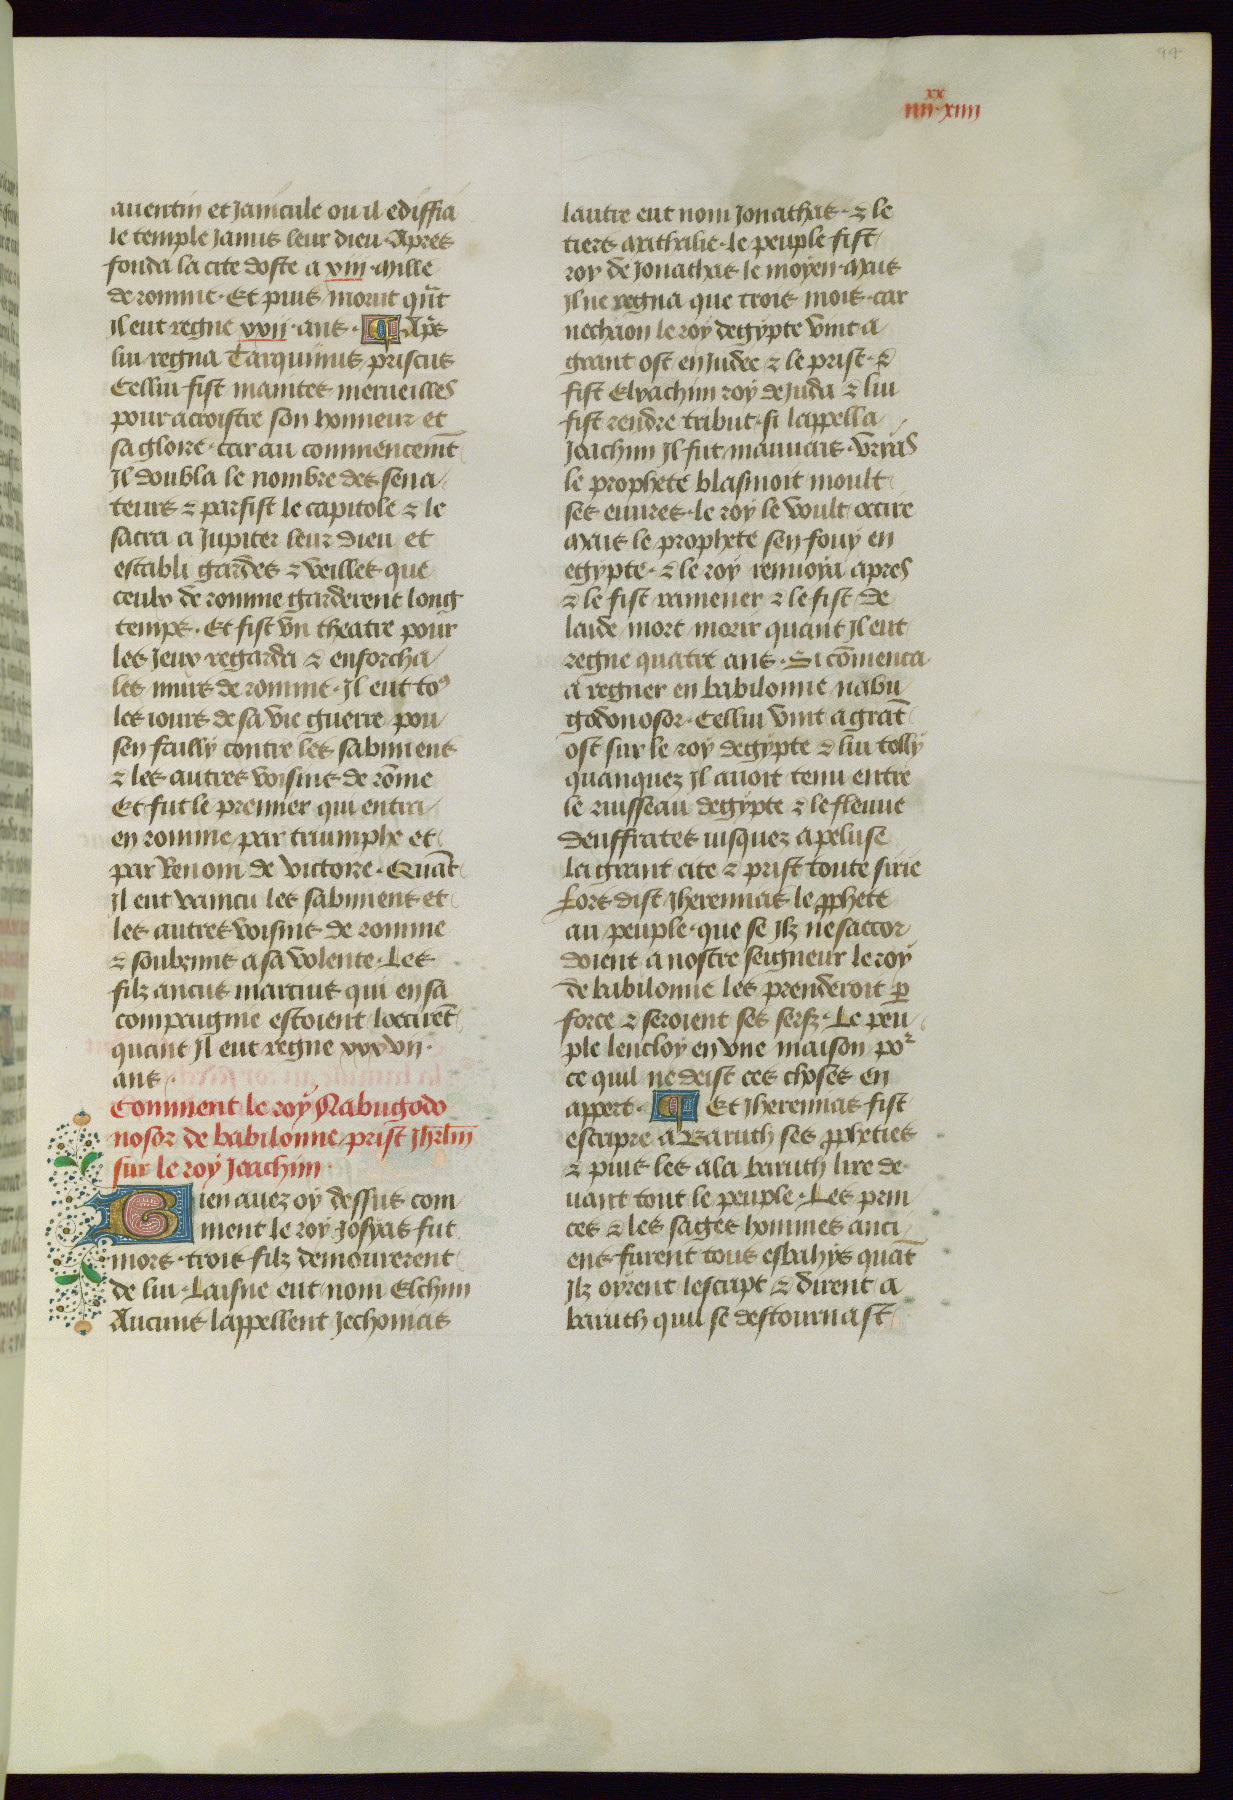 94
xx
iiii xiiii
auentin et Janicule ou il ediffia
le temple Janus leur dieu. Apres
fonda la cite doste a xiiii mille
de romme. Et puis morut qñt
il eut regne xxii ans. Ap̃s
lui regna Tarquinus priscus
Cellui fist maintes merueilles
pour acroistre son honneur et
sa gloire. car au commencemẽt
Il doubla le nombre des sena
teurs & parfist le capitole & le
sacra a Jupiter leur dieu et
establi gardes & veilles que
ceulx de romme garderent long
temps. Et fist vn theatre pour
les Jeux regarder & enforcha
les murs de romme. Il eut to9
les iours de sa vie guerre pou
sen failly contre les sabiniens
& les autres voisins de rõme
Et fut le premier qui entra
en romme par triumphe et
par Renom de victoire. Quãt
Il eut vaincu les sabiniens et
les autres voisins de romme
& soubzmis a sa volente. Les
filz ancus marcius qui en sa
compaignie estoient loccirẽt
quant Il eut regne xxxvii.
ans.
Comment le roy Nabugodo
nosor de babilonne prist Jhrlm̃
sur le roy Joachim.
Bien auez oy dessus com
ment le roy Josyas fut
mors. trois filz demourerent
de lui. Laisne eut nom Elchim
Aucuns lappellent Jechonias
lautre eut nom Jonathas. & le
tiers Mathalie. Le peuple fist
roy de Jonathas le moyen. Mais
Il ne regna que trois mois. car
nechaon le roy degypte vint a
grant ost en Judee & le prist. &
fist Elyachim roy de Juda & lui
fist rendre tribut. si lappella
Joachim Il fut mauuais. vrias
le prophete blasmoit moult
ses euures. le roy le voult occire
Mais le prophete sen fouy en
egypte. & le roy renuoya apres
& le fist ramener & le fist de
laide mort morir quant Il eut
regne quatre ans. Si cõmenca
a regner en babilonne nabu
godonosor. Cellui vint a grãt
ost sur le roy degypte & lui tolly
quanquez Il auoit tenu entre
le ruisseau degypte & le fleuue
deuffrates iusquez a peluse
la grant cite & prist toute sirie
Lors dist Jheremias le ꝓphete
au peuple. que se Ilz ne saccor
doient a nostre seigneur le roy
de babilonne les prenderoit ꝑ
force & seroient ses serfz. Le peu
ple lencloy en vne maison por
ce quil ne deist ces choses en
appert. Et Jheremias fist
escripre a Baruth ses ꝓpheties
& puis les ala baruth lire de
uant tout le peuple. Les prin
ces & les sages hommes anci
ens furent tous esbahys quãt
Ilz oyrent lescript & dirent a
baruth quil se destournast